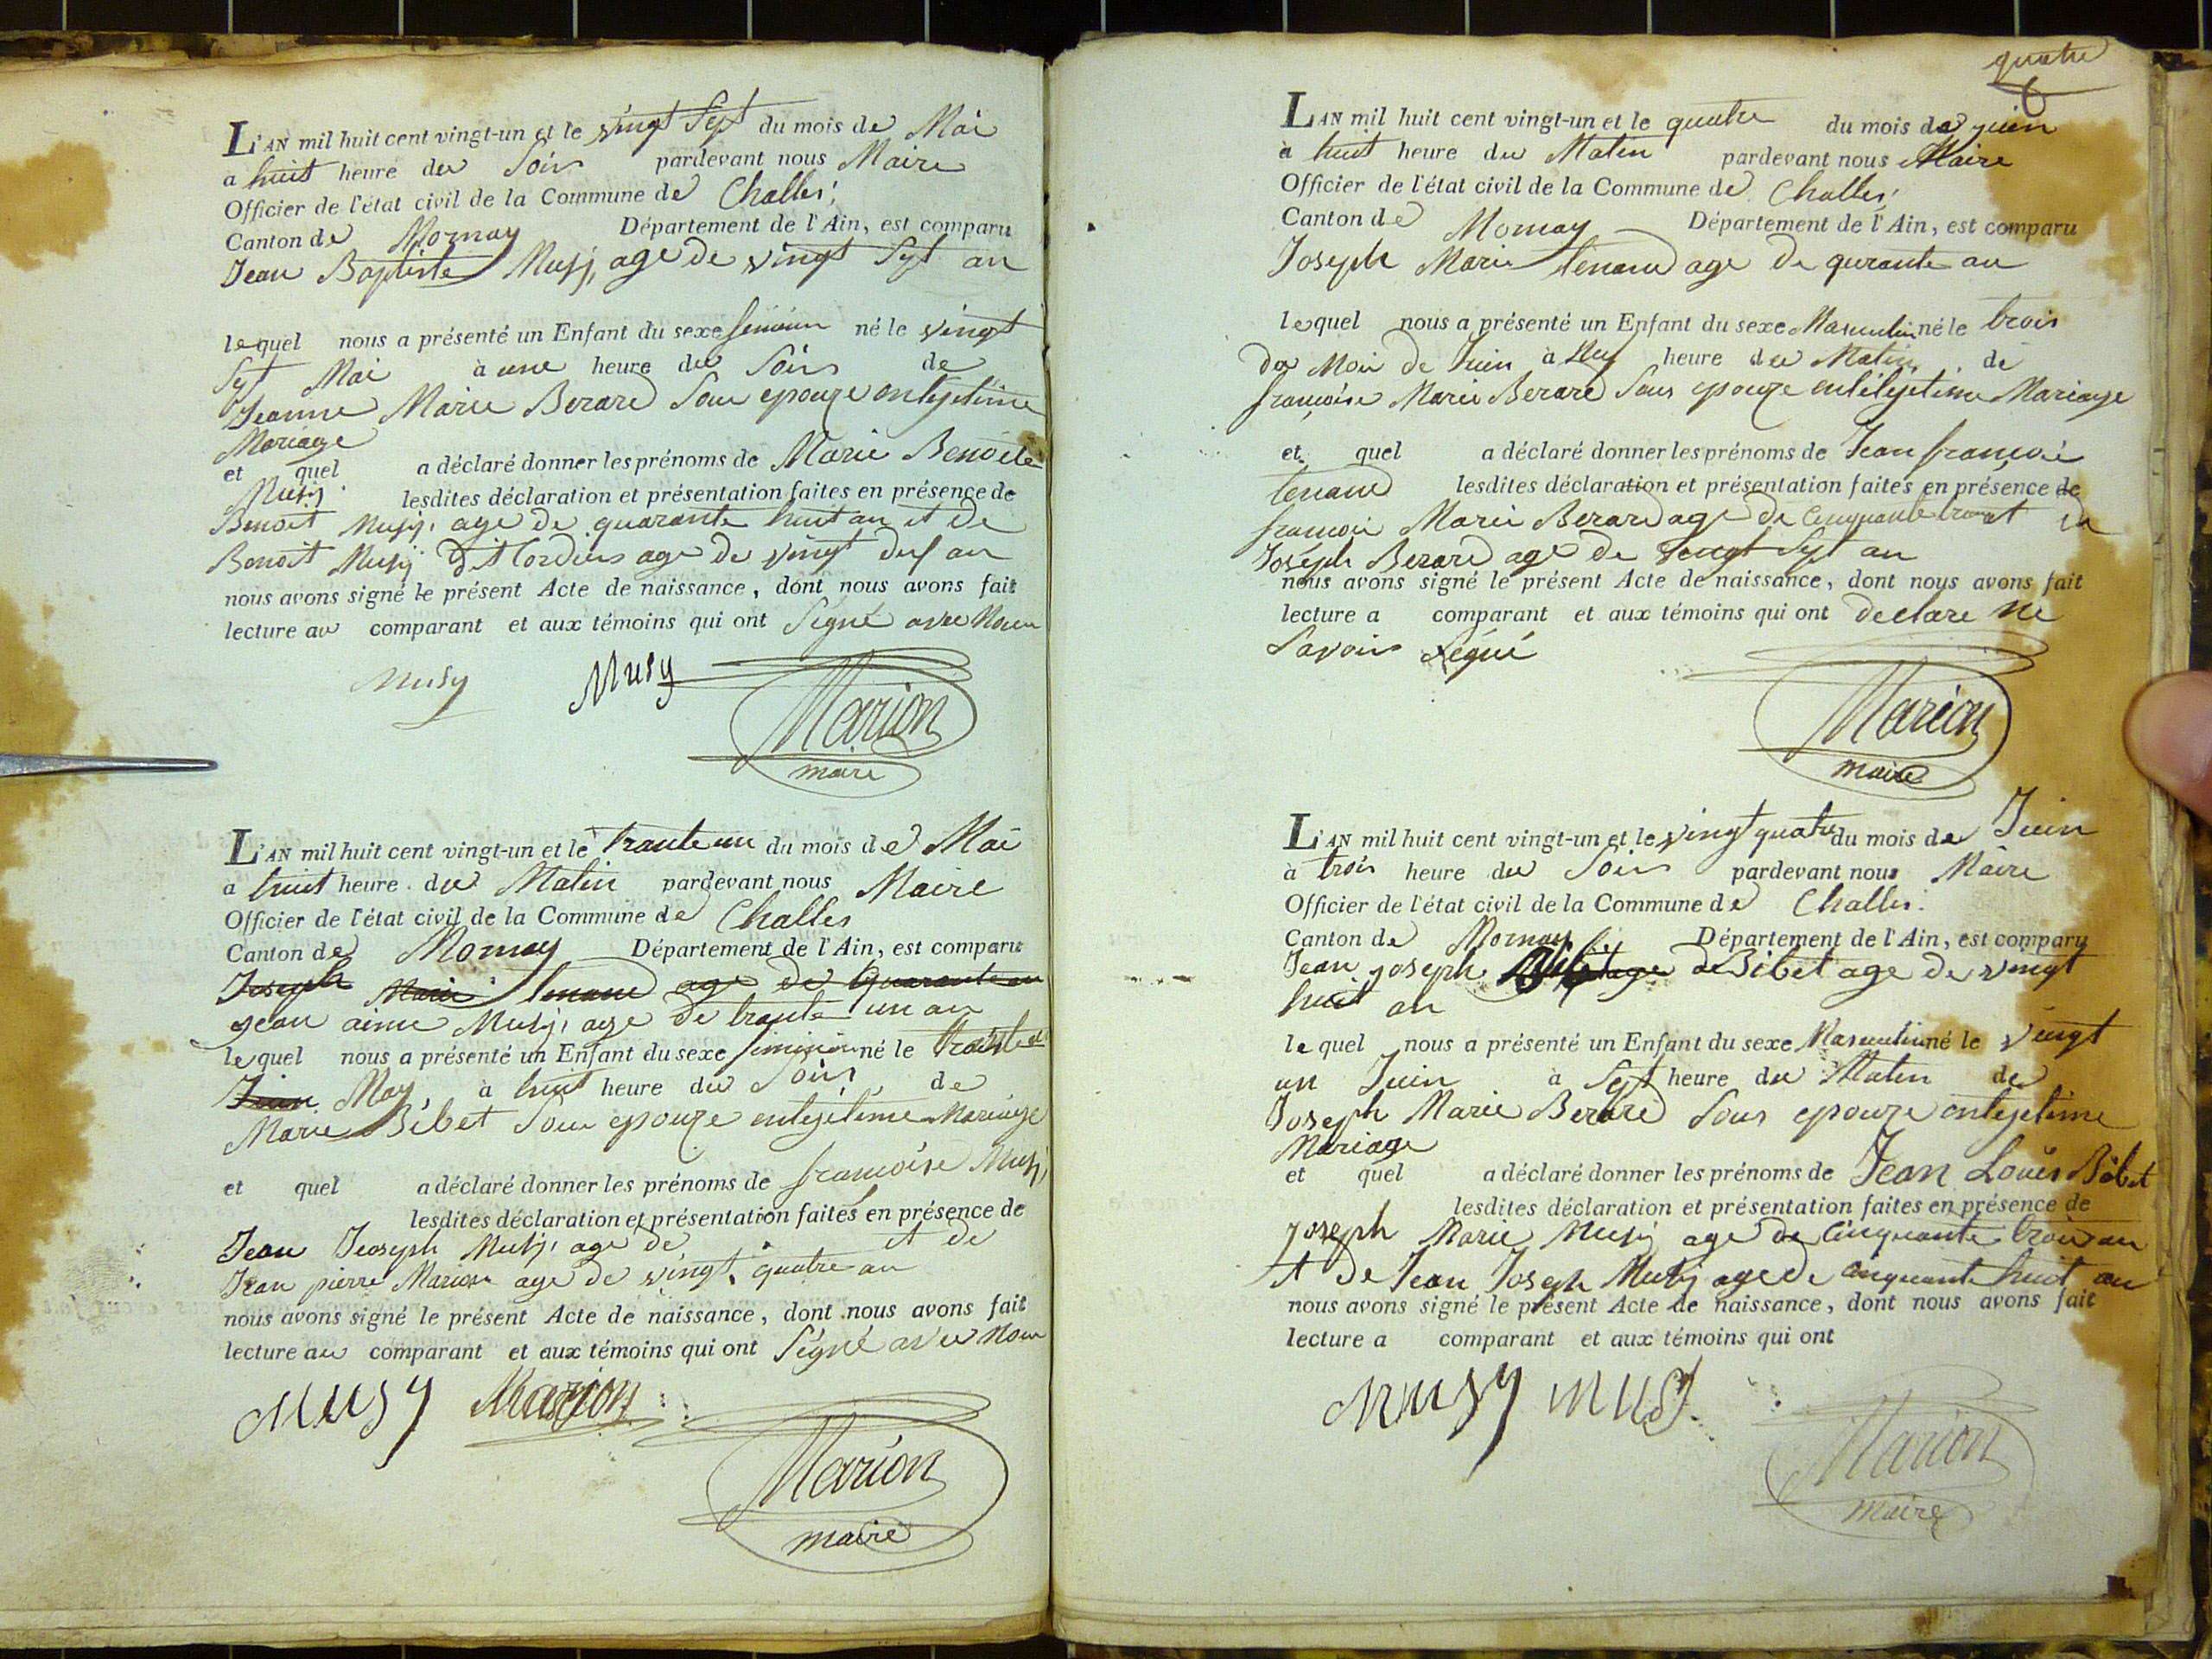 L'AN mil huit cent vingt-un et le vingt Sept du mois de Mai
a huit heure du Soir pardevant nous Maire
Officier de l'état civil de la Commune de Challes
Canton de Mornay Département de l'Ain, est comparu
Jean Baptiste Musy, age de vingt Sept an
lequel nous a présenté un Enfant du sexe feminin né le vingt
Sept Mai à une heure du Soir de
Jeanne Marie Berard Son epouze en legitime
Mariage
et quel a déclaré donner les prénoms de Marie Benoite
Musy lesdites déclaration et présentation faites en présence de
Benoit Musy, age de quarante huit an et de
Benoit Musy dit Cordier age de vingt an
nous avons signé le présent Acte de naissance, dont nous avons fait
lecture au comparant et aux témoins qui ont Signé avec Nous
Musy Musy Marion
maire
L'AN mil huit cent vingt-un et le trante un du mois de Mai
a huit heure du Matin pardevant nous Maire
Officier de l'état civil de la Commune de Challes
Canton de Mornay Département de l'Ain, est comparu
Joseph Marie tenand age de quarante an
Jean aime Musy, age de trante un an
lequel nous a présenté un Enfant du sexe feminin né le
Juin May, à huit heure du Soir, de
Marie Bibet Son epouze en legitime Mariage
et quel a déclaré donner les prénoms de francoise Musy
lesdites déclaration et présentation faites en présence de
Jean Jeoseph Musy, age de et de
Jean pierre Marion age de vingt quatre an
nous avons signé le présent Acte de naissance, dont nous avons fait
lecture au comparant et aux témoins qui ont Signé avec Nous
Musy Marion
Marion
maire
quatre
L'AN mil huit cent vingt-un et le quatre du mois de juin
à huit heure du Matin pardevant nous Maire
Officier de l'état civil de la Commune de Challes
Canton de Mornay Département de l'Ain, est comparu
Joseph Marie tenand age de qurante an
lequel nous a présenté un Enfant du sexe Masculin né le trois
du Moi de Juin à heure du Matin, de
francoise Marie Berard Sous epouze en legitime Mariage
et quel a déclaré donner les prénoms de Jean francois
tenand lesdites déclaration et présentation faites en présence de
francoi Marie Berard age de Cinquante et de
Joseph Berard age de vingt Sept an
nous avons signé le présent Acte de naissance, dont nous avons fait
lecture a comparant et aux témoins qui ont declare ne
Savoir Signé
Marion
maire
L'AN mil huit cent vingt-un et le vingt quatre du mois de Juin
à trois heure du Soir pardevant nous Maire
Officier de l'état civil de la Commune de Challes
Canton de Mornay Département de l'Ain, est comparu
Jean joseph Bibet age de vingt
huit an
lequel nous a présenté un Enfant du sexe Masculin né le vingt
un Juin à Sept heure du Matin de
Joseph Marie Berard Sous epouze en legetime
Mariage
et quel a déclaré donner les prénoms de Jean Louis Bibet
lesdites déclaration et présentation faites en présence de
joseph Marie Musy age de Cinquante trois an
et de Jean Joseph Musy age de cinquante huit an
nous avons signé le présent Acte de naissance, dont nous avons fait
lecture a comparant et aux témoins qui ont
Musy Musy
Marion
maire